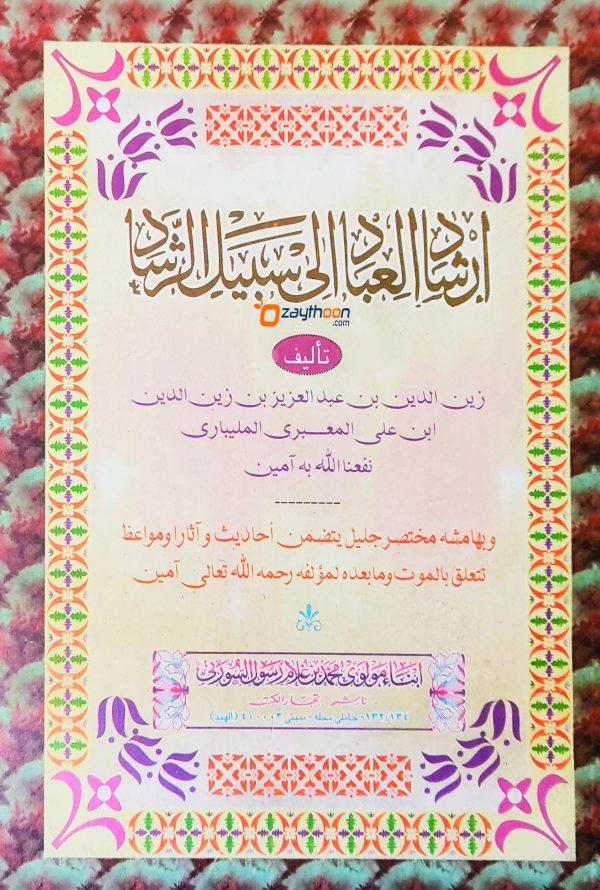 ارشاد العباد الى سبيل الرشاد
zaythoon
.com
تأليف
زين الدين بن عبد العزيز بن زين الدين
ابن على المعبرى المليبارى
نفعنا الله به آمين
وبهامشه مختصر جليل يتضمن أحاديث وآثارا ومواعظ
تتعلق بالموت ومابعده لمؤلفه رحمه الله تعالى آمين
ابناء مولوى محمد بن غلام رسول السورتى
ناشر تجار الكتب
١٣٢/١٣٤ - جاملى محله - ممبئى ٤٠٠٠٠٣ (الهند)